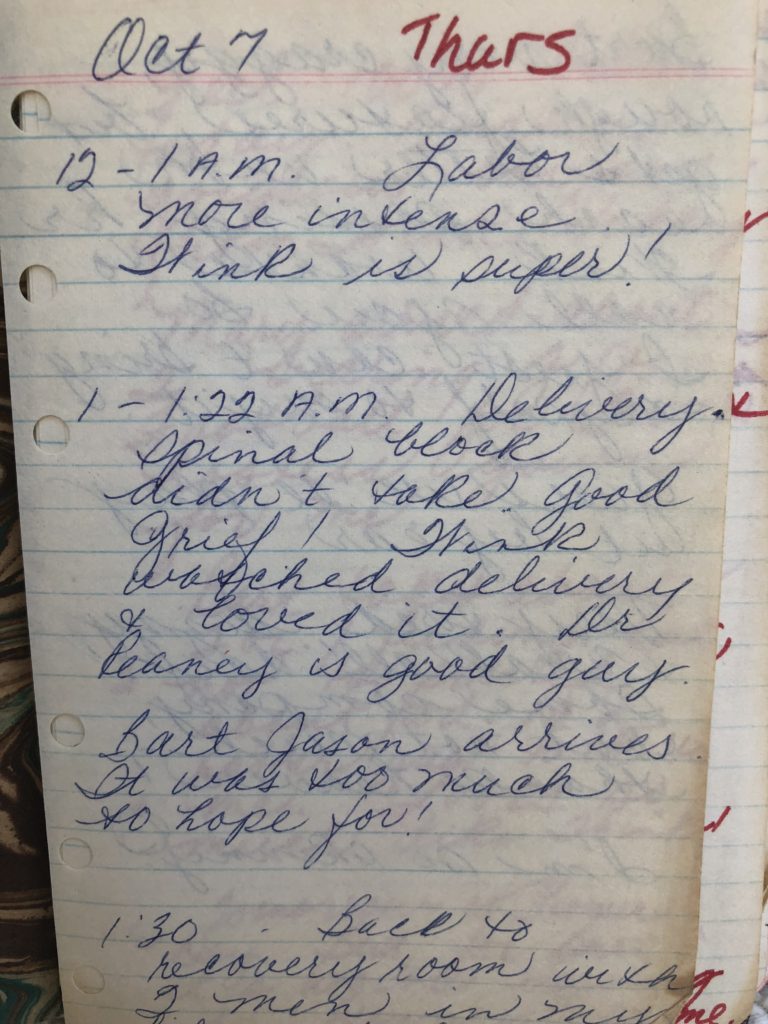 Oct 7 Thars
12 - 1 A.M. Labor
more intense.
Wink is super!
1 - 1:22 A.M. Delivery.
spinal block
didn't take. Good
grief! Wink
watched delivery
& loved it. Dr
Reaney is good guy.
Bart Jason arrives.
It was too much
to hope for!
1:30 . Back to
recovery room with
2 men in my
me.